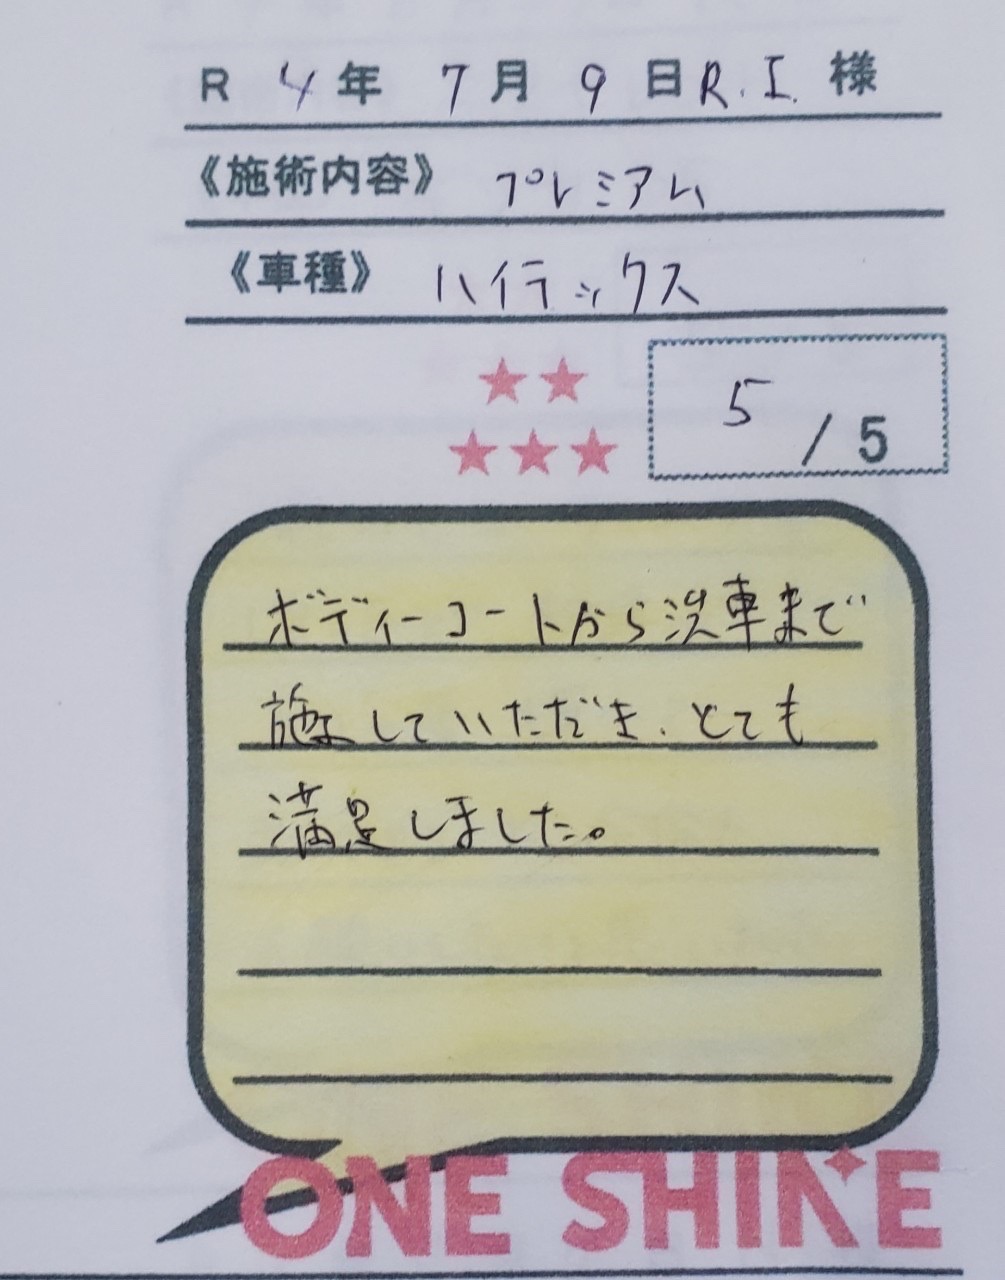 R 4年 7月 9日 R.I. 様
《施術内容》 プレミアム
《車種》 ハイラックス
5 / 5
ボディーコートから洗車まで
施工していただき、とても
満足しました。
ONE SHINE